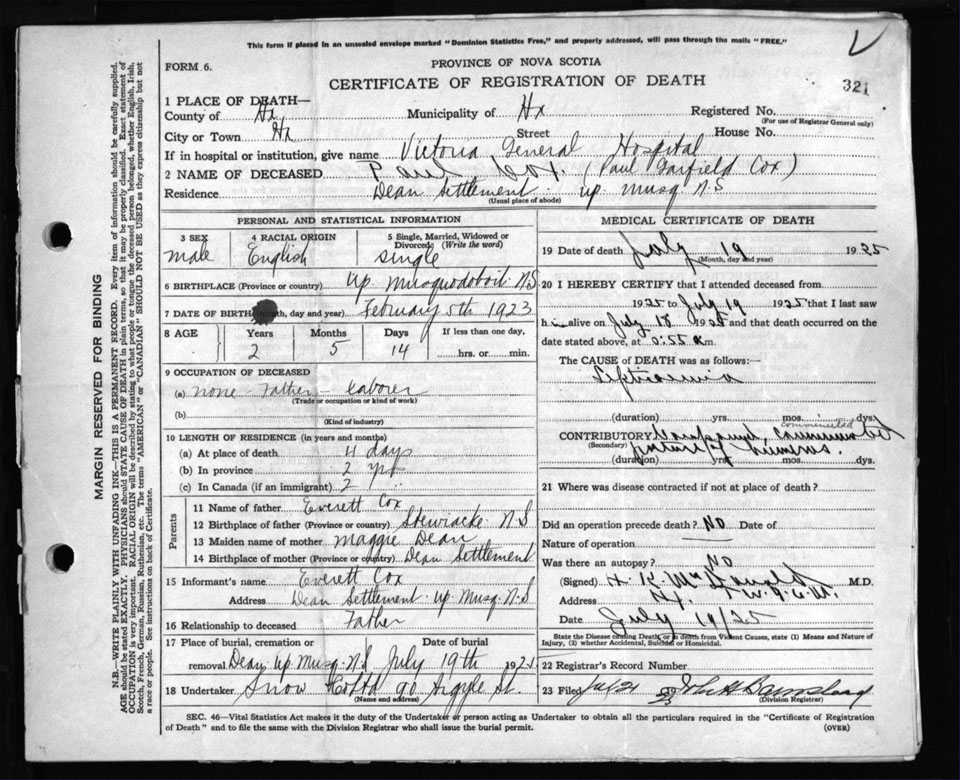 This form if placed in an unsealed envelope marked "Dominion Statistics Free," and properly addressed, will pass through the mails "FREE."
FORM 6.
PROVINCE OF NOVA SCOTIA
CERTIFICATE OF REGISTRATION OF DEATH
321
1 PLACE OF DEATH—
County of Hx Municipality of Hx Registered No.
(For use of Registrar General only)
City or Town Hx Street House No.
If in hospital or institution, give name Victoria General Hospital
2 NAME OF DECEASED Paul Cox. (Paul Garfield Cox)
Residence Dean Settlement up. Musq N.S
(Usual place of abode)
PERSONAL AND STATISTICAL INFORMATION
3 SEX 4 RACIAL ORIGIN 5 Single, Married, Widowed or Divorced (Write the word)
male English single
6 BIRTHPLACE (Province or country) Up. Musquodoboit N.S
7 DATE OF BIRTH (Month, day and year) February 5th 1923
8 AGE Years Months Days If less than one day,
2 5 14 hrs. or min.
9 OCCUPATION OF DECEASED
(a) none - Father - laborer
(Trade or occupation or kind of work)
(b)
(Kind of industry)
10 LENGTH OF RESIDENCE (in years and months)
(a) At place of death 4 days
(b) In province 2 yrs
(c) In Canada (if an immigrant) 2 "
Parents
11 Name of father Everett Cox
12 Birthplace of father (Province or country) Stewiacke N.S
13 Maiden name of mother Maggie Dean
14 Birthplace of mother (Province or country) Dean Settlement
15 Informant's name Everett Cox
Address Dean Settlement up. Musq. N.S
16 Relationship to deceased Father
17 Place of burial, cremation or removal Date of burial
Dean up. Musq. N.S July 19th 1925.
18 Undertaker Snow 90 Argyle St.
(Name and address)
MEDICAL CERTIFICATE OF DEATH
19 Date of death July 19 1925
(Month, day and year)
20 I HEREBY CERTIFY that I attended deceased from
1925 to July 19 1925 that I last saw
h im alive on July 18 1925 and that death occurred on
date stated above, at 0:55 a m.
The CAUSE of DEATH was as follows:
Septicaemia
(duration) yrs. mos. dys.
comminuted
CONTRIBUTORY Compound,
(Secondary) humerus.
(duration) yrs. mos. dys.
21 Where was disease contracted if not at place of death?
Did an operation precede death? NO Date of
Nature of operation
Was there an autopsy? NO
(Signed) H. K. McDonald M.D.
Address Hx.
Date July 19/25
State the Disease causing Death, or in death from Violent Causes, state (1) Means and Nature of Injury, (2) whether Accidental, Suicidal or Homicidal.
22 Registrar's Record Number
23 Filed Jul 21
(Division Registrar)
SEC. 46—Vital Statistics Act makes it the duty of the Undertaker or person acting as Undertaker to obtain all the particulars required in the "Certificate of Registration
of Death" and to file the same with the Division Registrar who shall issue the burial permit.
(OVER)
MARGIN RESERVED FOR BINDING
N.B.—WRITE PLAINLY WITH UNFADING INK—THIS IS A PERMANENT RECORD. Every item of information should be carefully supplied.
AGE should be stated EXACTLY. PHYSICIANS should STATE CAUSE OF DEATH in plain terms, so that it may be properly classified. Exact statement of
OCCUPATION is very important. RACIAL ORIGIN will be described by stating to what people or tongue the deceased person belonged, whether English, Irish,
Scotch, French, German, Russian, Ruthenian, etc. The terms "AMERICAN" or "CANADIAN" SHOULD NOT BE USED as they express citizenship but not
a race or people. See instructions on back of Certificate.